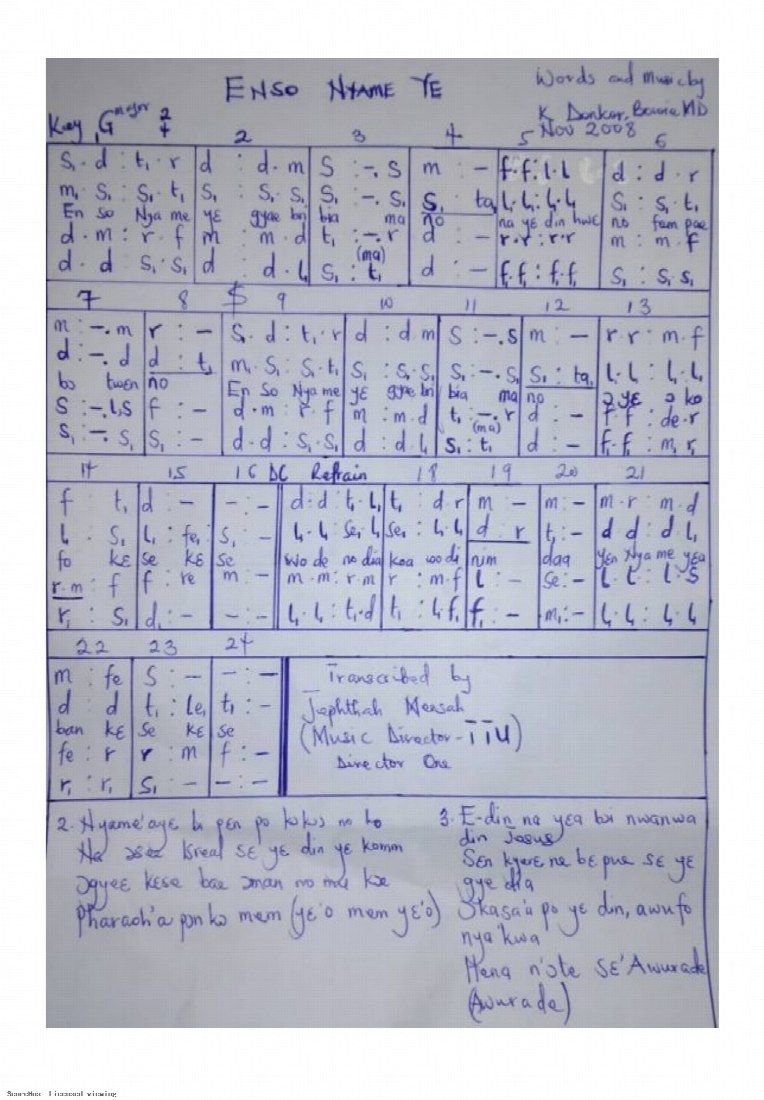 ENSO NYAME YE
Words and Music by
K. Donkor, Bowie MD
Nov 2008
Key G major 2/4
2 3 4 5 6
S₁ . d : t₁ . r | d : d . m | S : - . S | m : - | f . f : l . l | d : d . r
m₁ . S₁ : S₁ . t₁ | S₁ : S₁ . S₁ | S₁ : - . S₁ | S₁ : ta₁ | l₁ . l₁ : l₁ . l₁ | S₁ : S₁ . t₁
En so Nya me yɛ gyae bri bia ma no na yɛ din hwɛ no fam pae
d . m : r . f | m : m . d | t₁ : - . r | d : - | r . r : r . r | m : m . f
(ma)
d . d : S₁ . S₁ | d : d . l₁ | S₁ : t₁ | d : - | f₁ . f₁ : f₁ . f₁ | S₁ : S₁ . S₁
7 8 $ 9 10 11 12 13
m : - . m | r : - | S₁ . d : t₁ . r | d : d m | S : - . S | m : - | r r : m . f
d : - . d | d : t₁ | m₁ . S₁ : S₁ . t₁ | S₁ : S₁ . S₁ | S₁ : - . S₁ | S₁ : ta₁ | l₁ . l₁ : l₁ . l₁
bo twen no En So Nya me yɛ gyae bri bia ma no ɔ yɛ ɔ ko
S : - . l . S | f : - | d . m : r . f | m : m . d | t₁ : - . r | d : - | f . f : de . r
(ma)
S₁ : - . S₁ | S₁ : - | d . d : S₁ . S₁ | d : d l₁ | S₁ : t₁ | d : - | f₁ . f₁ : m₁ . r₁
14 15 16 DC Refrain 18 19 20 21
f : t₁ | d : - | - : - | d : d : t₁ . l₁ | t₁ : d . r | m : - | m : - | m . r : m . d
l₁ : S₁ | l₁ : fe₁ | S₁ : - | l₁ . l₁ : se₁ . l₁ | se₁ : l₁ . l₁ | d : r | t₁ : - | d d : d l₁
fo kɛ se kɛ se wo de no dia koa wo di nim daa yɛn Nya me yɛa
r . m : f | f : re | m : - | m . m : r . m | r : m . f | l : - | se : - | l . l : l . S
r₁ : S₁ | d₁ : - | - : - | l₁ . l₁ : t₁ . d | t₁ : l₁ f₁ | f₁ : - | m₁ : - | l₁ . l₁ : l₁ . l₁
22 23 24
m : fe | S : - | - : -
d : d | t₁ : le₁ | t₁ : -
ban kɛ se kɛ se
fe : r | r : m | f : -
r₁ : r₁ | S₁ : - | - : -
Transcribed by
Jephthah Mensah
(Music Director - TTU)
Director One
2. Nyame ayɛ bi pɛn po kɔkɔɔ no ho
Na Israel sɛ yɛ din yɛ komm
ɔgyeɛ kɛse bae ɔman no mu kɔe
Pharaoh'a pɔnkɔ mem (yɛ'o mem yɛ'o)
3. E-din na yɛa bɔ nwanwa
din Jesus
Sɛn kyerɛ na bɛ pue sɛ yɛ
gye dia
ɔkasa'a po yɛ din, awufo
nya'kwa
Hena n'ote sɛ' Awurade
(Awurade)